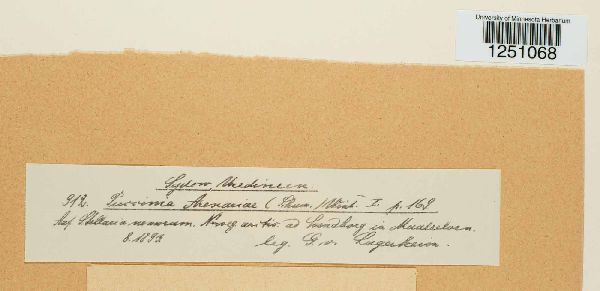 University of Minnesota Herbarium
1251068
Sydow, Uredineen
912. Puccinia Arenariae (Schum.) Wint. I. p. 169
Auf Stellaria nemorum. Norwegen: ad in
8.1892 leg. G. v. Lagerheim.